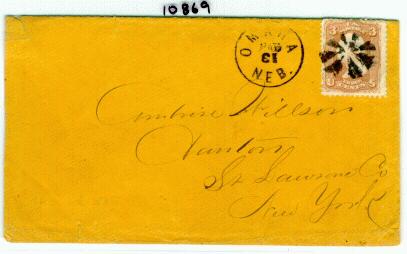 10869
OMAHA
13
NEB.
3 3
Ambrose Willson
Canton
St Lawrence Co
New York